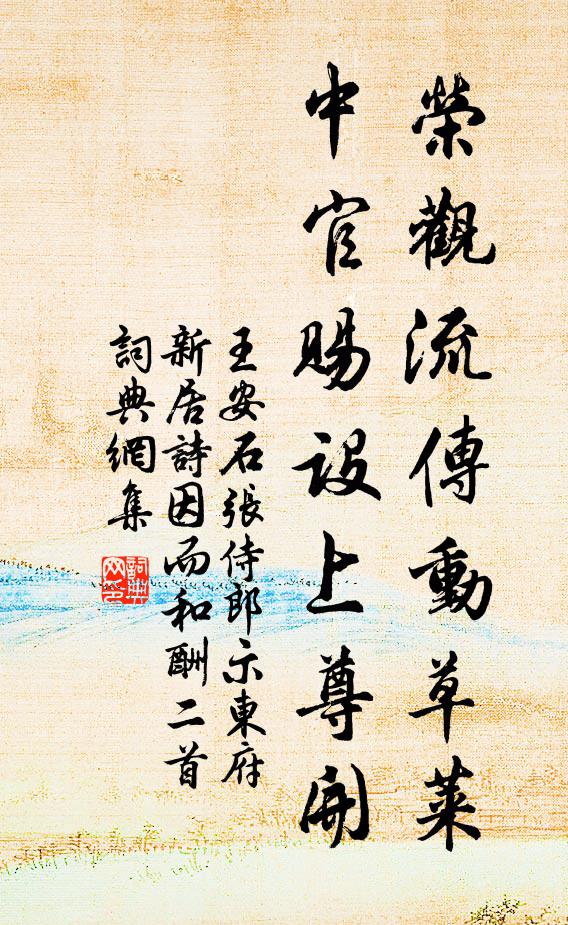 榮觀流傳動草萊
中官賜設上尊開
王安石張侍郎示東府
新居詩因而和酬二首
詞典網集
詞典
网